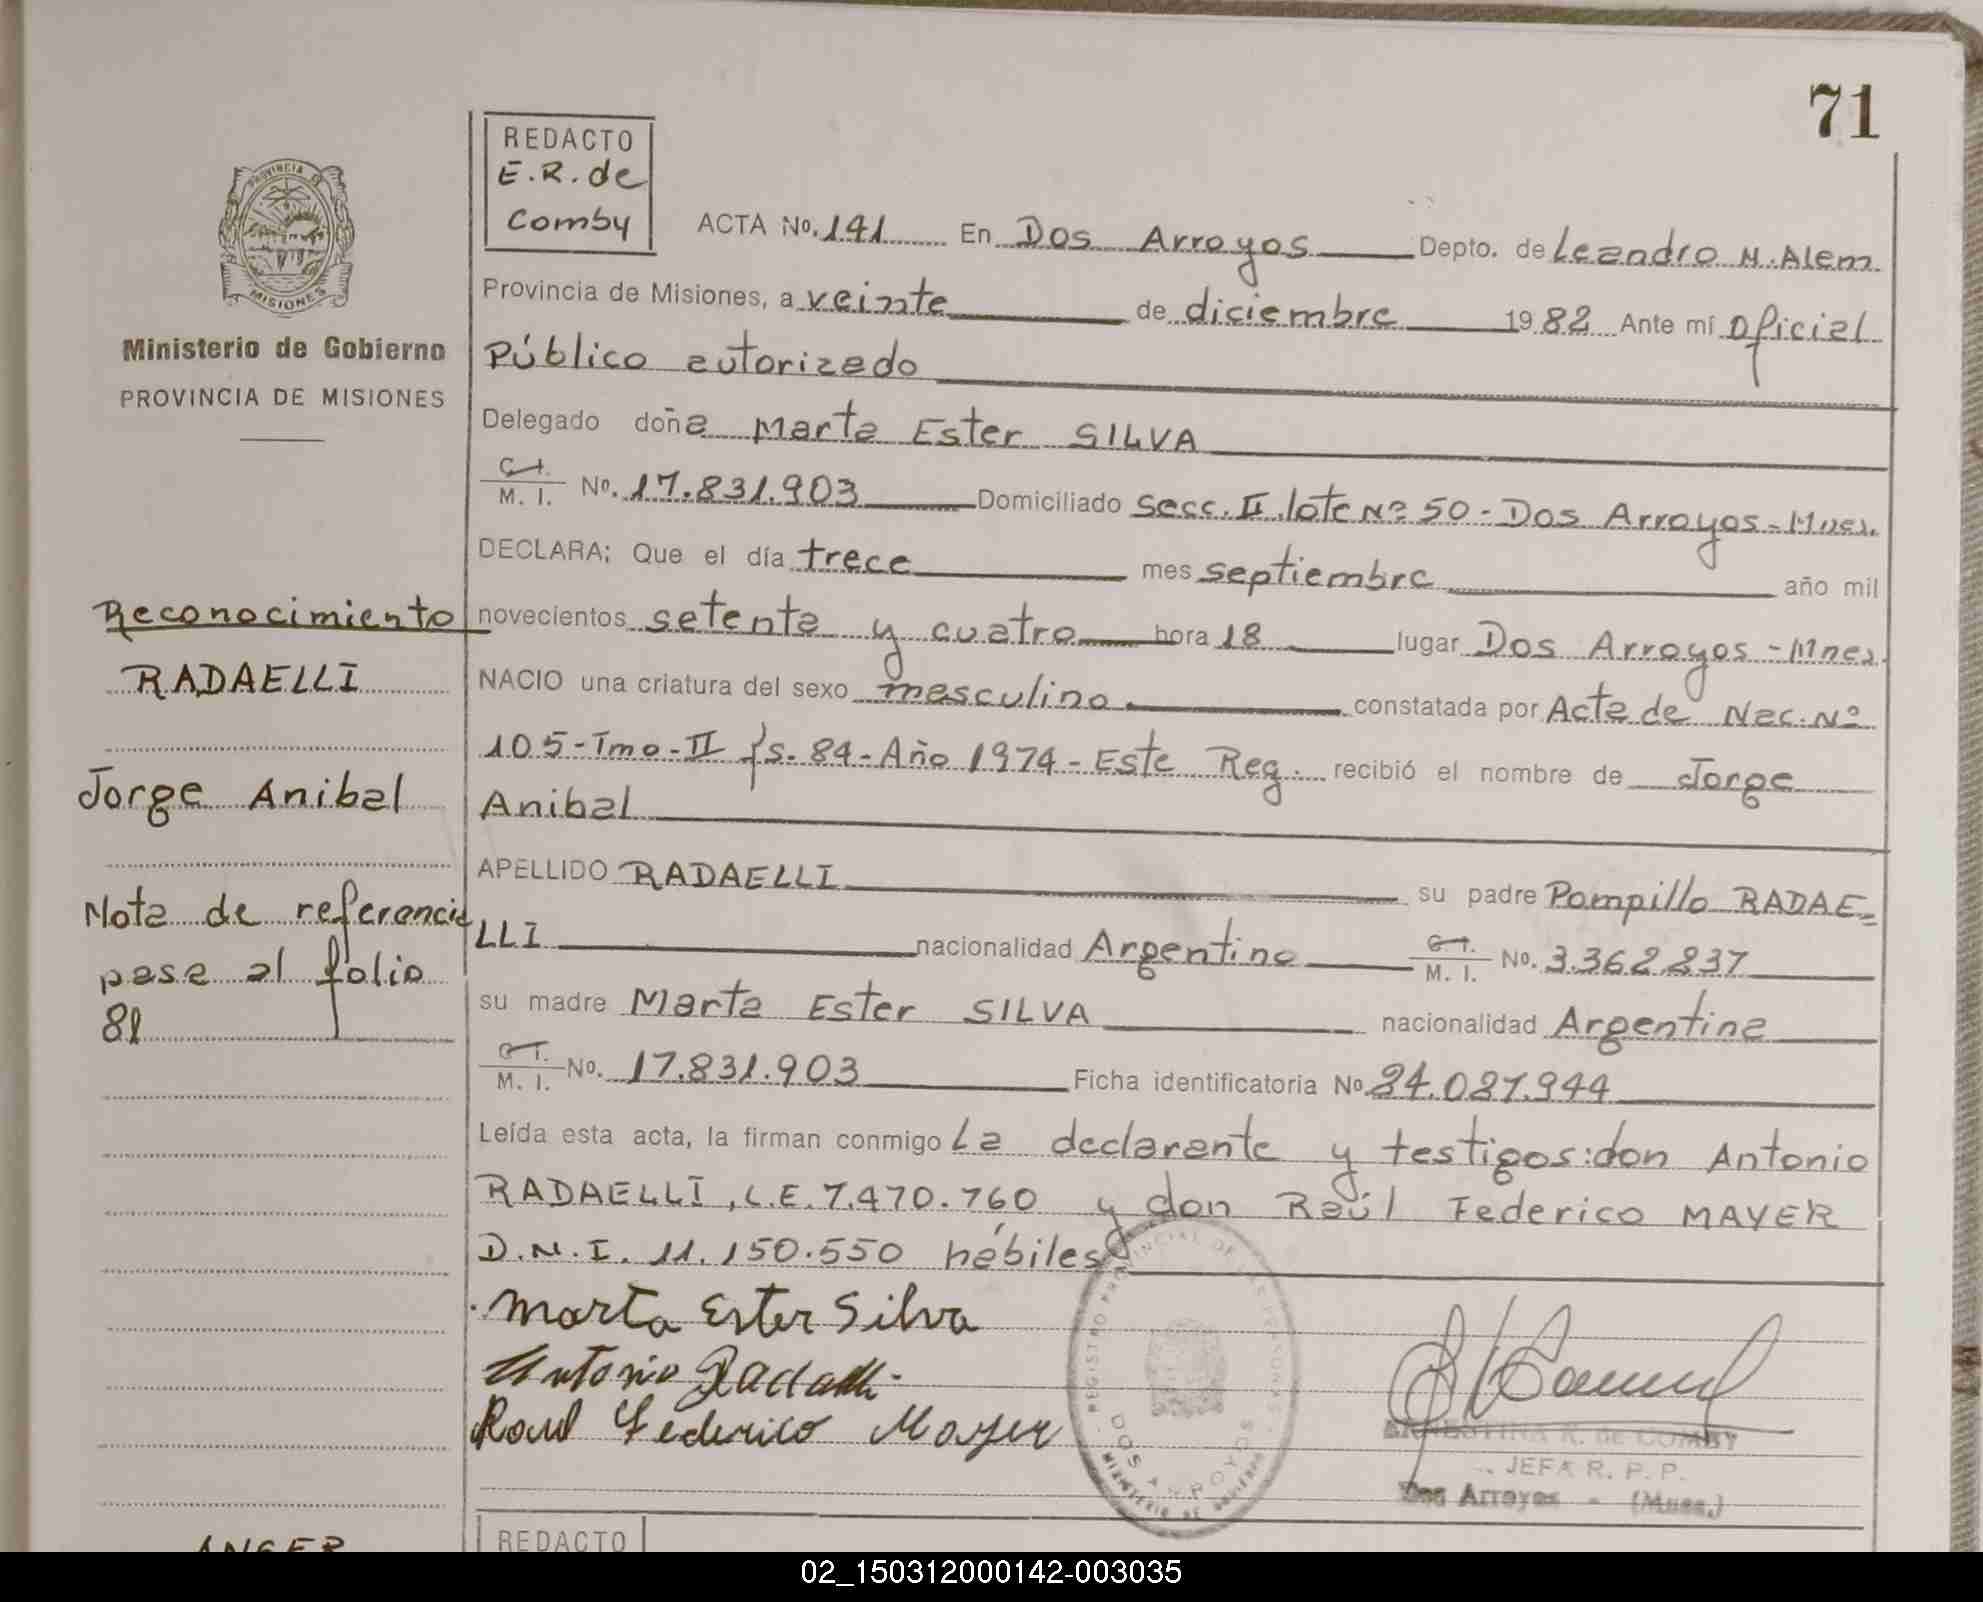 71
REDACTO
E.R. de
Comby
ACTA No. 141 En Dos Arroyos Depto. de Leandro N. Alem
Provincia de Misiones, a veinte de diciembre 1982 Ante mí Oficial
Público autorizado
Delegado doña Marta Ester SILVA
C.I.
M. I. No. 17.831.903 Domiciliado Secc. II lote Nº 50 - Dos Arroyos - Mnes.
DECLARA: Que el día trece mes septiembre año mil
novecientos setenta y cuatro hora 18 lugar Dos Arroyos - Mnes.
NACIO una criatura del sexo masculino constatada por Acta de Nac. Nº
105 - Tmo - II fs. 84 - Año 1974 - Este Reg. recibió el nombre de Jorge
Anibal
APELLIDO RADAELLI su padre Pampillo RADAE=
LLI nacionalidad Argentino C.I. M. I. No. 3.362.837
su madre Marta Ester SILVA nacionalidad Argentina
C.I.
M. I. No. 17.831.903 Ficha identificatoria No 24.027.944
Leída esta acta, la firman conmigo La declarante y testigos: don Antonio
RADAELLI, L.E. 7.470.760 y don Raúl Federico MAYER
D.N.I. 11.150.550 hábiles
Marta Ester Silva
Antonio Radaelli
Raul Federico Mayer
PROVINCIA DE
MISIONES
Ministerio de Gobierno
PROVINCIA DE MISIONES
Reconocimiento
RADAELLI
Jorge Anibal
Nota de referencia
pasa al folio
81
REGISTRO PROVINCIAL DE LAS PERSONAS
DOS ARROYOS
MINISTERIO DE GOBIERNO
ERNESTINA R. de COMBY
JEFA R. P. P.
Dos Arroyos - (Mnes.)
REDACTO
ANGER
02_150312000142-003035